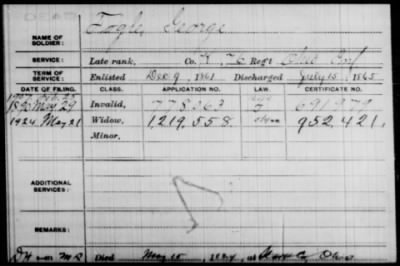 DEAD
Fogle, George
NAME OF SOLDIER:
SERVICE: Late rank, Co. K, 76 Reg't Ohio Inf
TERM OF SERVICE: Enlisted Dec. 9, 1861 Discharged July 15, 1865
DATE OF FILING. CLASS. APPLICATION NO. LAW. CERTIFICATE NO.
May 29 Invalid, 778,563 691,979
1924, May 21 Widow, 1,219,558 952,421.
Minor,
ADDITIONAL SERVICES:
REMARKS:
Died May 15, 1924, at Ohio